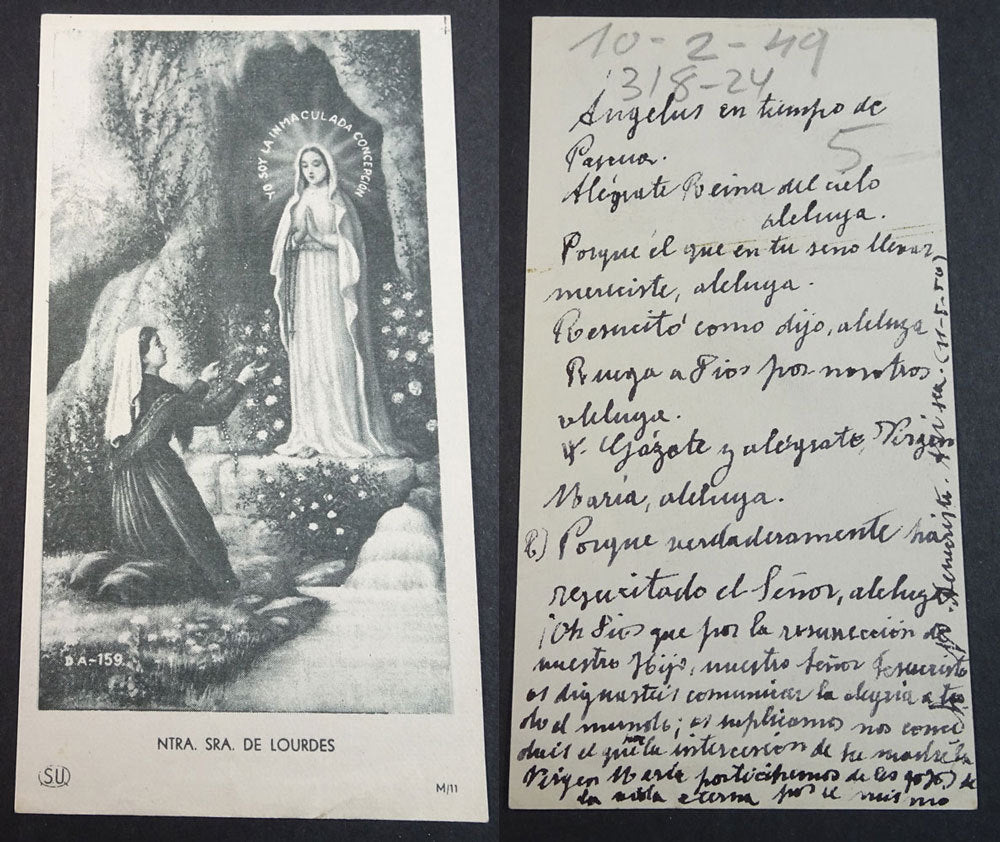 YO SOY LA INMACULADA CONCEPCION
DA-159
NTRA. SRA. DE LOURDES
S.U.
M/11
10-2-49
318-24
5
Ángelus en tiempo de
Pascua.
Alégrate Reina del cielo
aleluya.
Porque él que en tu seno llevar
mereciste, aleluya.
Resucitó como dijo, aleluya
Ruega a Dios por nosotros
aleluya.
V. Gózate y alégrate, Virgen
María, aleluya.
R) Porque verdaderamente ha
resucitado el Señor, aleluya
¡Oh Dios que por la resurrección de
nuestro Hijo, nuestro Señor Jesucristo
os dignasteis comunicar la alegria a to
do el mundo; os suplicamos nos conce
dais el que la intercesión de tu madre la
Virgen María participemos de los gozos de
la vida eterna por el mismo
Jesucristo.